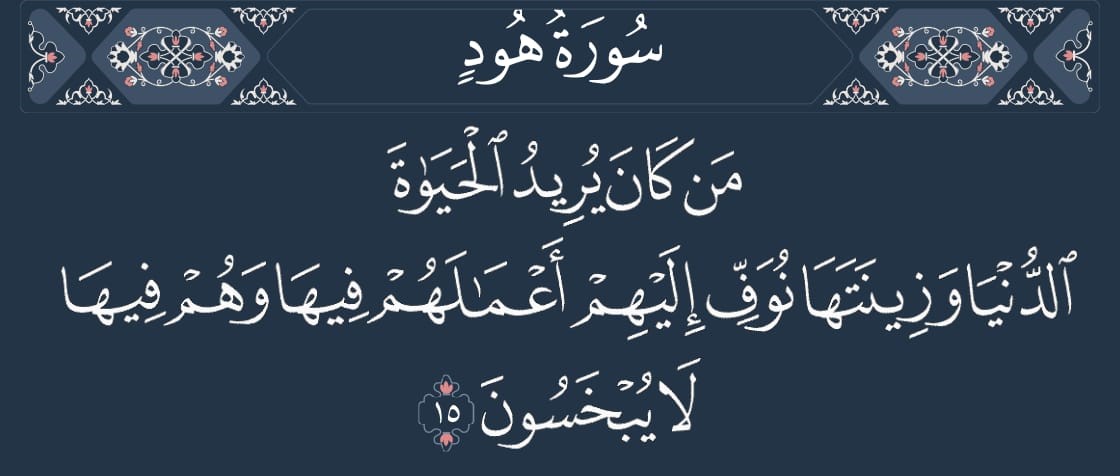 سُورَةُ هُودٍ
مَن كَانَ يُرِيدُ ٱلْحَيَوٰةَ
ٱلدُّنْيَا وَزِينَتَهَا نُوَفِّ إِلَيْهِمْ أَعْمَٰلَهُمْ فِيهَا وَهُمْ فِيهَا
لَا يُبْخَسُونَ ١٥